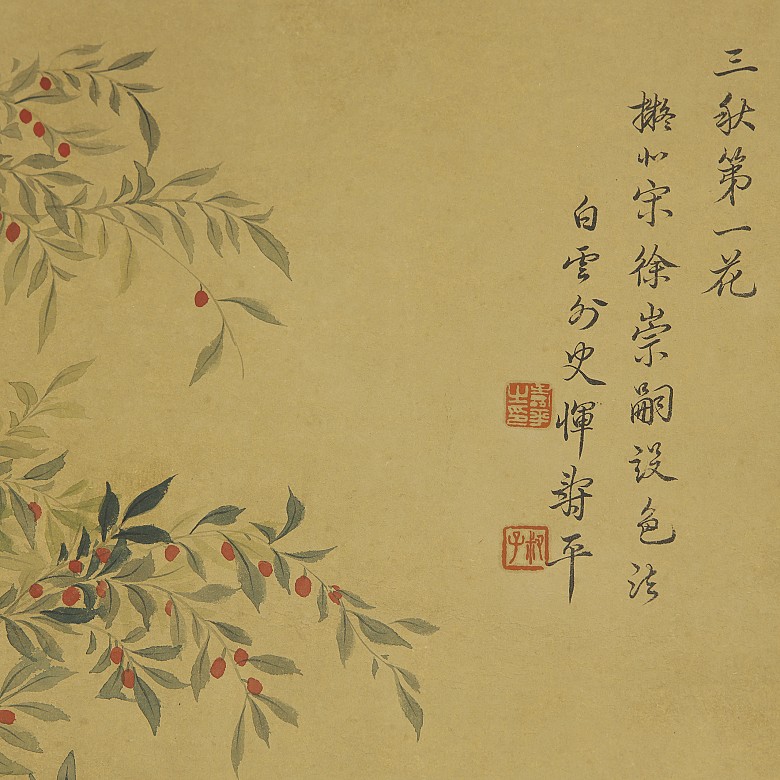 三秋第一花
擬北宋徐崇嗣設色法
白雲外史惲壽平
壽平
叔子